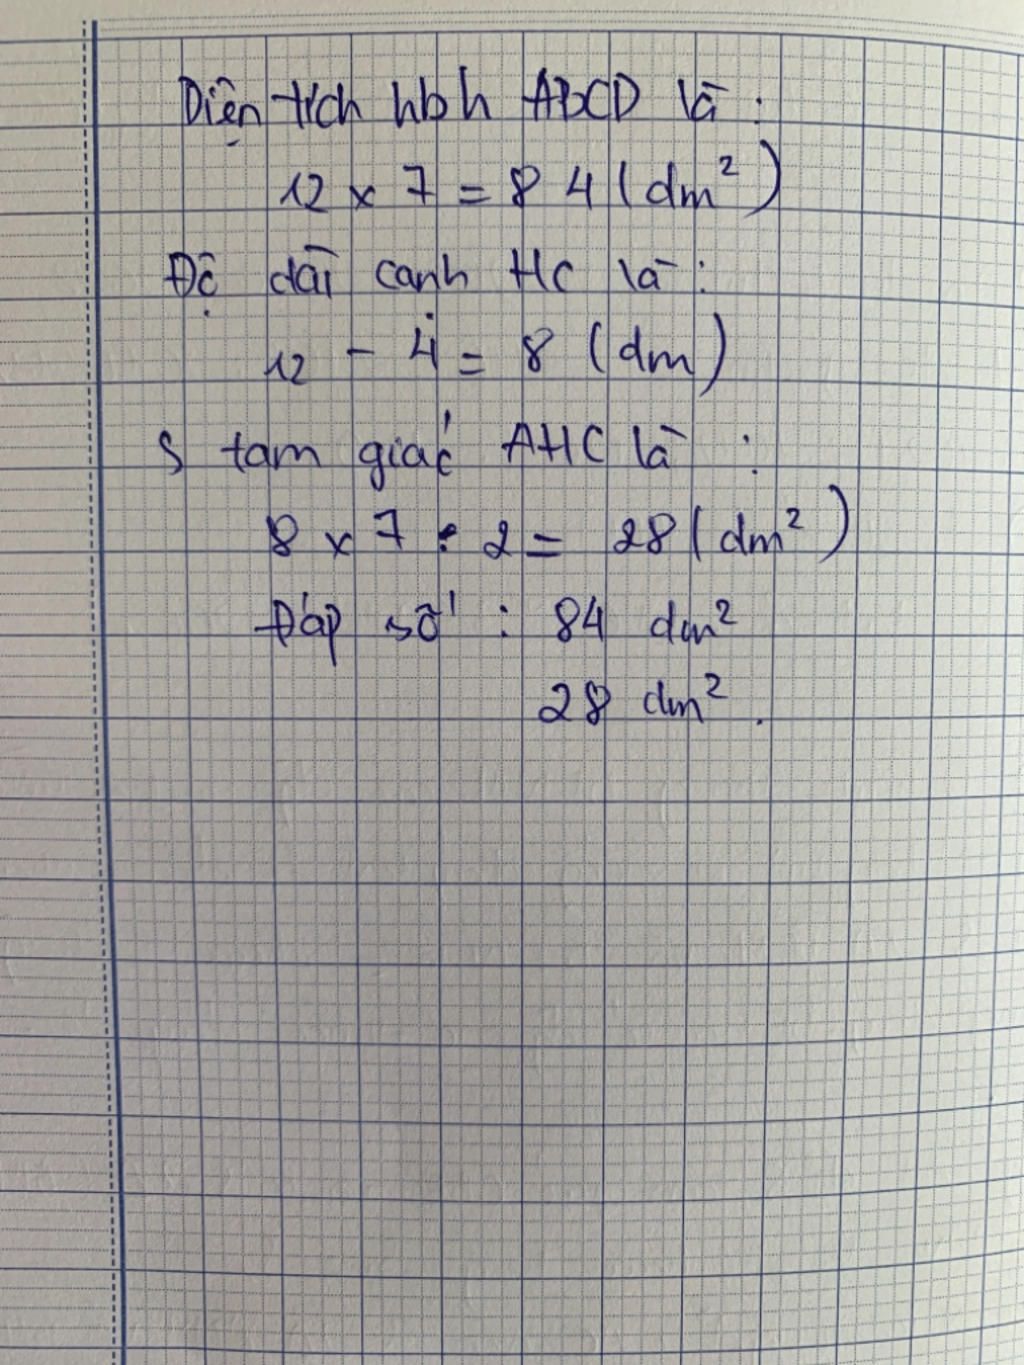 Diện tích hbh ABCD là :
12 x 7 = 84 (dm²)
Độ dài cạnh HC là :
12 - 4 = 8 (dm)
S tam giác AHC là :
8 x 7 : 2 = 28 (dm²)
Đáp số : 84 dm²
28 dm².